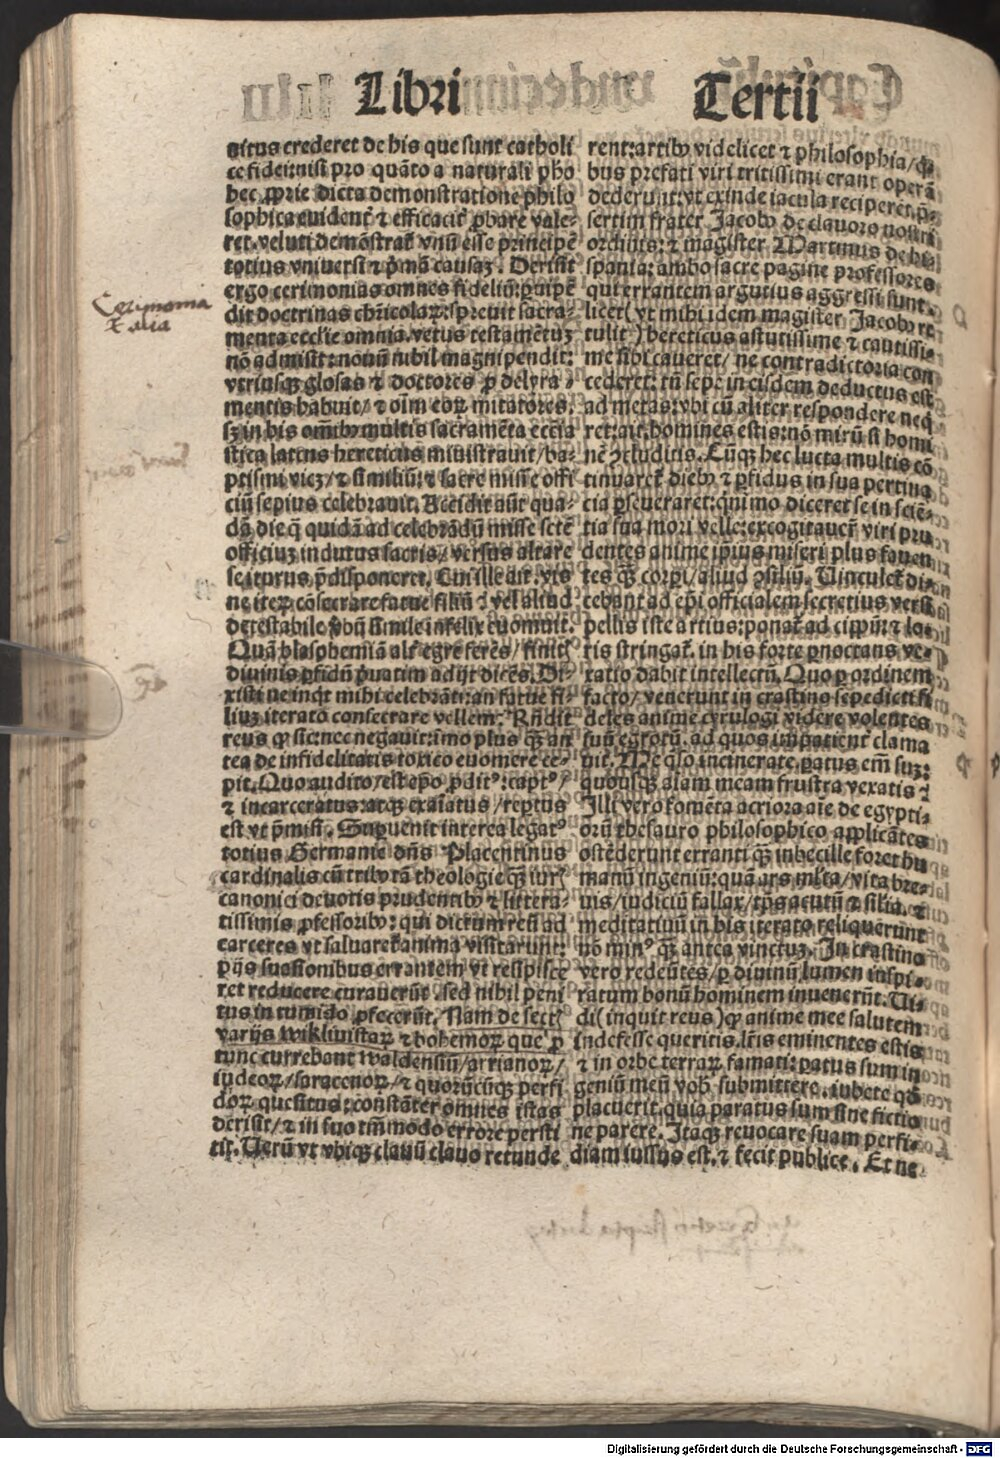 Libri Tertii
Cerimonia
& alia
uitus crederet de his que sunt catholi
ce fidei:nisi pro quāto a naturali pho
hec ꝓprie dicta demonstratione philo
sophica euidenť ⁊ efficaciť ꝓbare vale-
ret.veluti demōstrať vnū esse principē
totius vniuersi ⁊ p̄mā causaꝫ. Derisit
ergo cerimonias omnes fideliū:ꝑuipē
dit doctrinas chricolaꝝ:spreuit sacra-
menta ecclie omnia.vetus testamētuꝫ
nō admisit:nouū nihil magnipendit:
vtriusqꝫ glosas ⁊ doctores ꝓ delyra-
mentis habuit/⁊ oīm eoꝝ imitatores.
sꝫ in his oībꝰ multis sacramēta eccia
stica latens hereticus ministrauit/ba-
ptismi viceꝫ/⁊ similiū:⁊ sacre misse offi
ciū sepius celebrauit. Accidit aūt qua-
dā die q̄ quidā ad celebrādū misse setē
officiuꝫ indutus sacris/versus altare
se iturus p̄disponeret. Cui ille ait.vis
ne iteꝝ cōsecrare fatue filiū? vel aliud
detestabile ꝟbū simile infelix euomuit.
Quā blasphemiā alť egre ferēs/finit͛
diuinis ꝑfidū pͥuatim adijt dicēs. Di-
xisti ne inqͭ mihi celebrāti:an fatue fi-
liuꝫ iterato consecrare vellem: Rñdit
reus ꝙ sic:nec negauit:imo plus qꝫ an
tea de infidelitatis toxico euomere ce-
pit. Quo audito/est epo ꝓditꝰ:captꝰ/
⁊ incarceratus:atqꝫ exaīatus/reptus
est vt p̄misi. Supuenit interea legatꝰ
totius Germanie dn̄s Placentinus
cardinalis cū tribꝰ tā theologie qꝫ iur͛
canonici deuotis prudentibꝰ ⁊ littera-
tissimis ꝓfessoribꝰ: qui dictum reū ad
carceres vt saluareť anima visitarunt:
pijs suasionibus errantem vt resipisce
ret reducere curauerūt.sed nihil peni
tus in tumido ꝓfecerūt. Nam de sect͛
varijs wikliuistaꝝ ⁊ bohemoꝝ que ꝓ
tunc currebant waldensiū/arrianoꝝ/
iudeoꝝ/saracenoꝝ/⁊ quorūcūqꝫ perfi
doꝝ quesitus:constāter omnes istas
derisit/⁊ in suo tm̄modo errore persti
tit. Uerū vt vbiqꝫ clauū clauo retunde
rent:artibꝰ videlicet ⁊ philosophia/qͥ-
bus prefati viri tritissimi erant operā
dederunt:vt exinde iacula reciperet.p̄-
sertim frater Jacobꝰ de clauoro nostri
ordinis:⁊ magister Martinus de hi-
spania:ambo sacre pagine professores
qui errantem argutius aggressi sunt.
licet(vt mihi idem magister Jacobꝰ re
tulit)hereticus astutissime ⁊ cautissi-
me sibi caueret/ne contradictoria con
cederet:tn̄ sepe in eisdem deductus est
ad metas:vbi cū aliter respondere neq̄
ret:ait.homines estis:nō mirū si homi
nē ꝯcluditis. Cūqꝫ hec lucta multis cō
tinuareť diebꝰ ⁊ ꝑfidus in sua pertina
cia ꝑseueraret:qͥnimo diceret se in sciē-
tia sua mori velle:excogitauerť viri pru
dentes anime ipsius miseri plus fauen
tes qꝫ corpi/aliud ꝯsiliū. Uinculeť di-
cebant ad epi officialem secretius versi
pellis iste artius:ponať ad cippū:⁊ lo-
ris stringať.in his forte ꝑnoctans ve-
xatio dabit intellectū. Quo ꝑ ordinem
facto/venerunt in crastino sepedicti fi
deles anime cyrulogi videre volentes
suū egrotū.ad quos impatienť clama
uit. Me qͣso incinerate.paratus em̄ suꝫ:
quousqꝫ aīam meam frustra vexatis?
Illi vero fomēta acriora āīe de egypti-
orū thesauro philosophico applicātes
ostēderunt erranti qꝫ inbecille foret hu
manū ingeniū:quā ars ml̄ta/vita bre-
uis/iudiciū fallax/tp̄s acutū ⁊ silia. ⁊
meditatiuū in his iterato reliquerunt
nō minꝰ qꝫ antea vinctuꝫ. In crastino
vero redeūtes/ꝑ diuinū lumen inspi-
ratum bonū hominem inuenerūt. Ui-
di(inquit reus)ꝙ anime mee salutem
indefesse queritis.lr̄is eminentes estis
⁊ in orbe terraꝝ famati:paratus sum in
geniū meū vob͛ submittere.iubete qđ
placuerit.quia paratus sum sine fictio
ne parere. Itaqꝫ reuocare suam perfi-
diam iussus est.⁊ fecit publice. Et ne
Digitalisierung gefördert durch die Deutsche Forschungsgemeinschaft - DFG